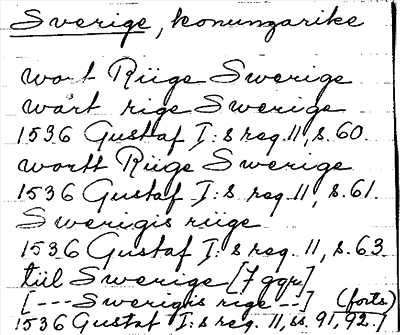 Sverige, konungarike
wort Riige Swerige
wårt rige Swerige
1536 Gustaf I:s reg. 11, s. 60.
wortt Riige Swerige
1536 Gustaf I:s reg. 11, s. 61.
Swerigis riige
1536 Gustaf I:s reg. 11, s. 63
tiil Swerige [7 ggr]
[---Swerigis rige--] (forts.)
1536 Gustaf I:s reg. 11, ss. 91, 92.